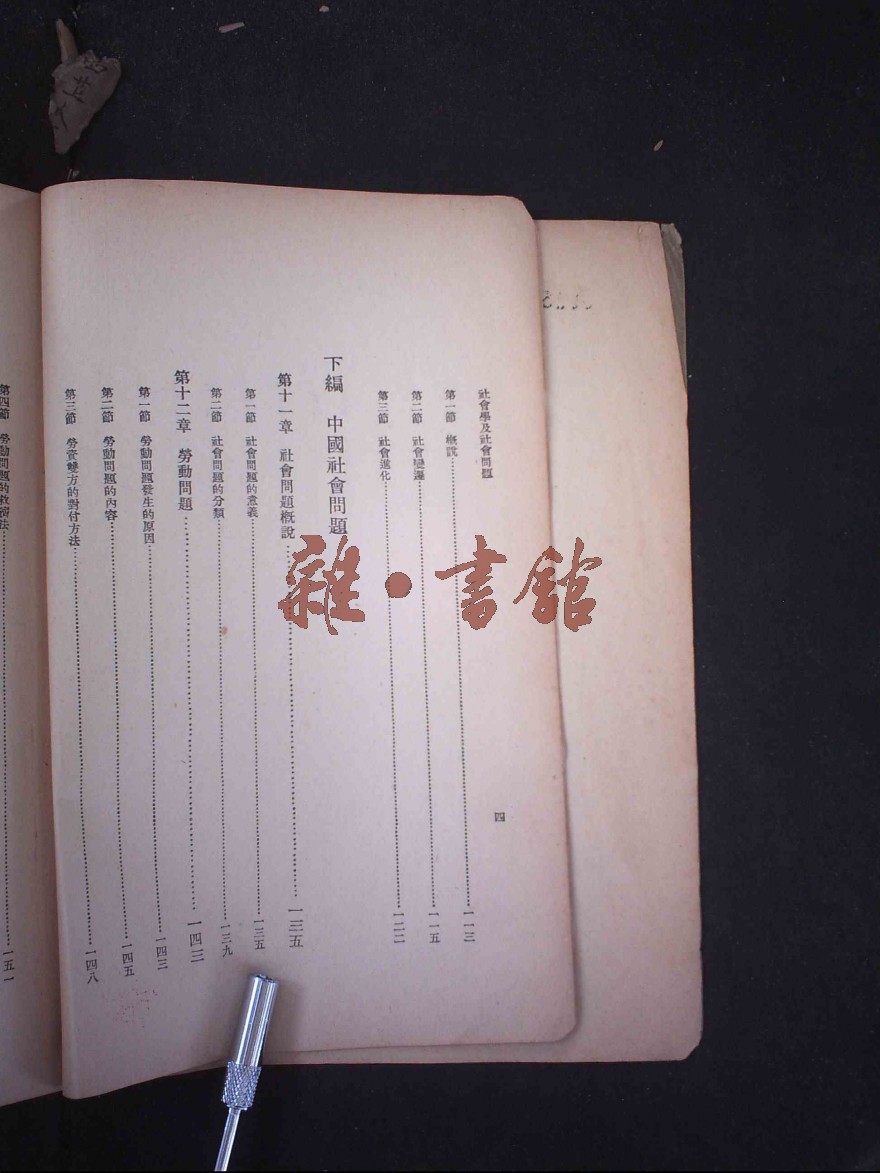 社會學及社會問題
四
第一節 概說 一一三
第二節 社會變遷 一一五
第三節 社會進化 一二二
下編 中國社會問題
第十一章 社會問題概說 一三五
第一節 社會問題的意義 一三五
第二節 社會問題的分類 一三九
第十二章 勞動問題 一四三
第一節 勞動問題發生的原因 一四三
第二節 勞動問題的內容 一四五
第三節 勞資雙方的對付方法 一四八
第四節 勞動問題的救濟法 一五一
雜·書館